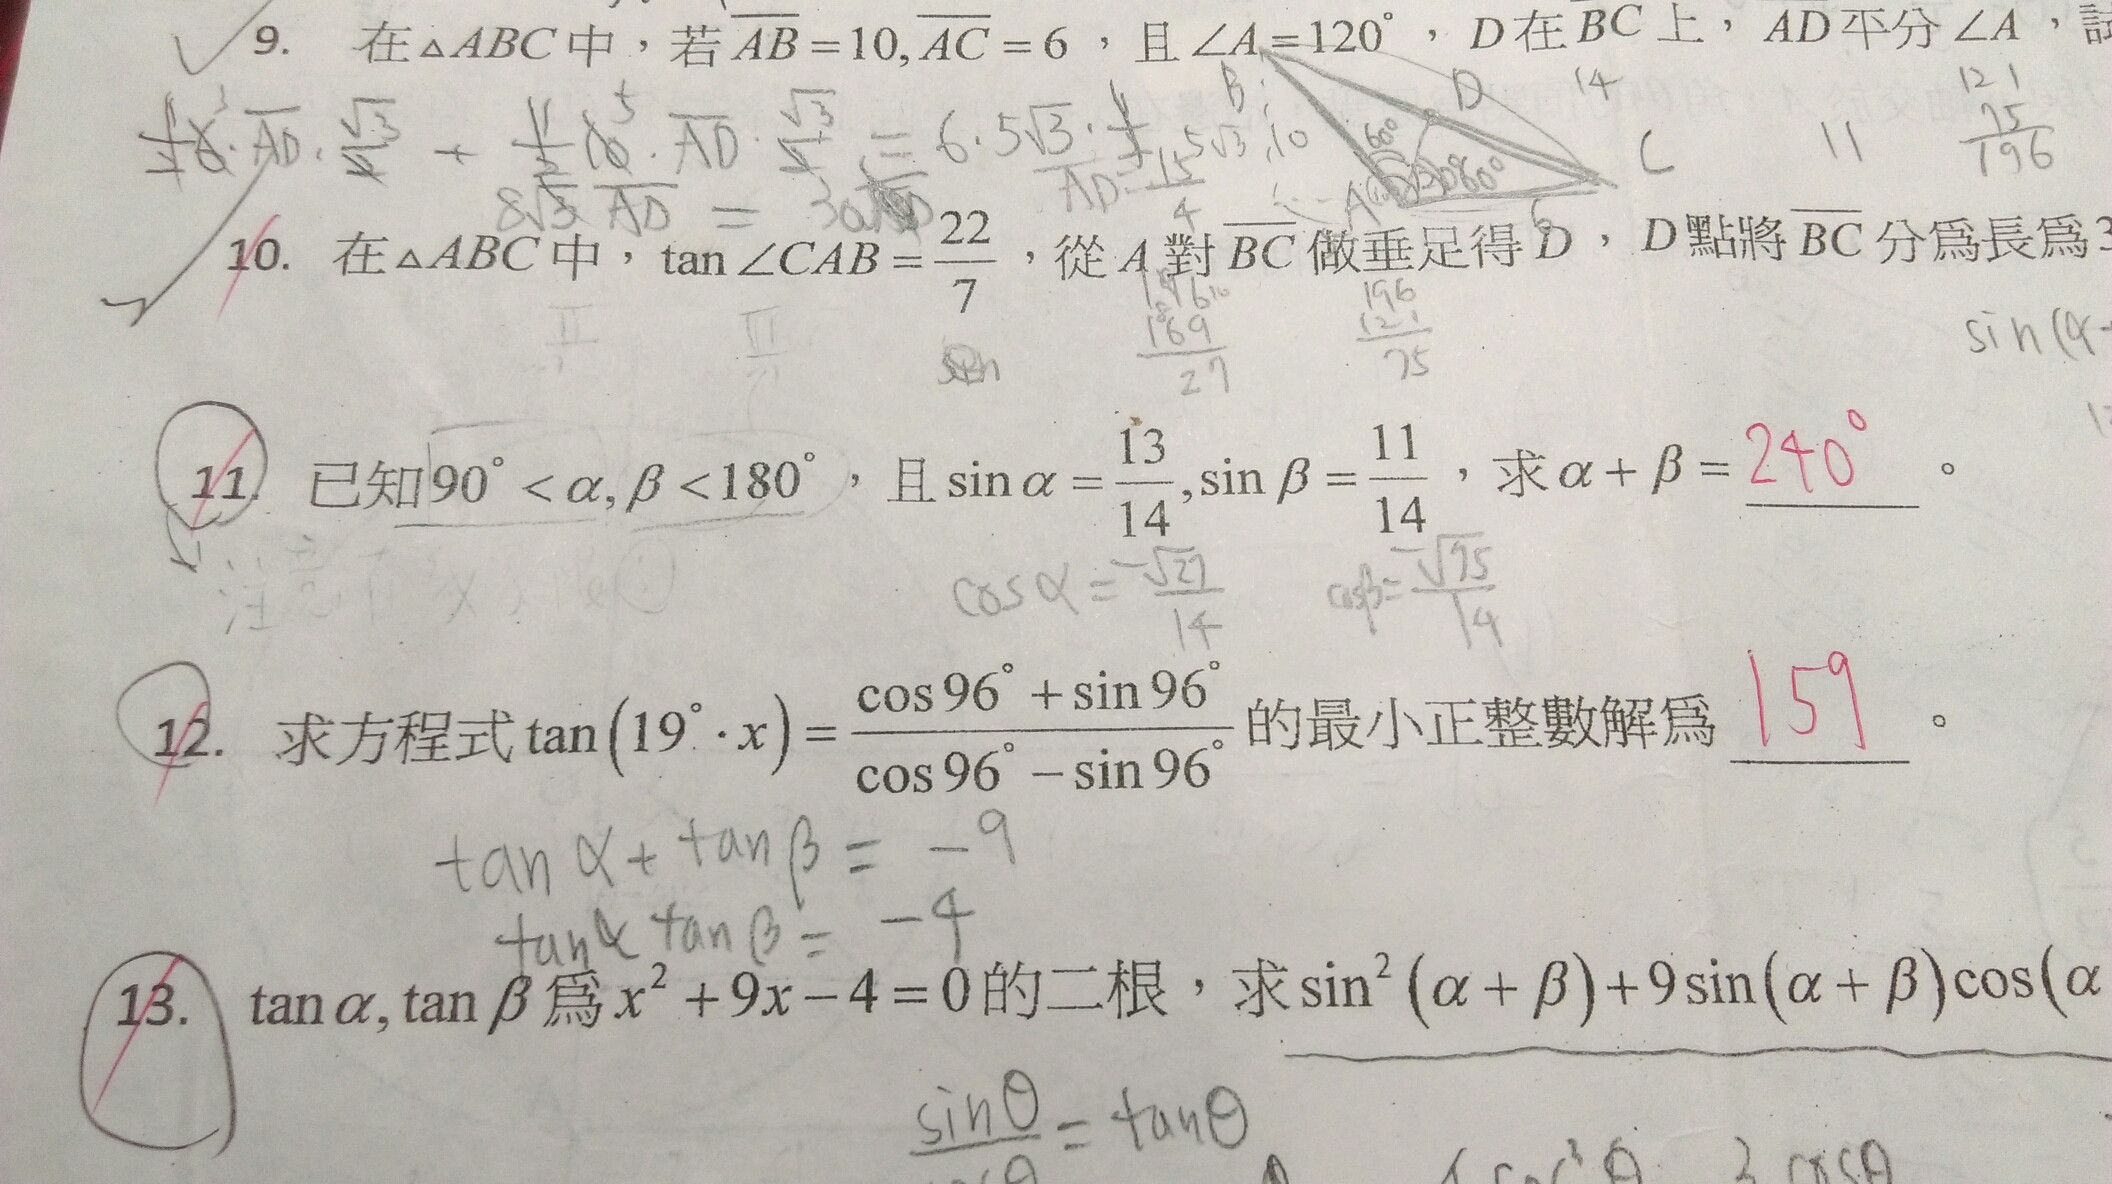 9. 在△ABC中，若AB=10, AC=6，且∠A=120°，D在BC上，AD平分∠A，試
B D 14 121
75
196
C 11
AD · √3 + AD · √3 = 6·5√3· 5√3 10
60° 60° A 6
8√3 AD = 30
10. 在△ABC中，tan∠CAB=22/7，從A對BC做垂足得D，D點將BC分爲長爲3
196
169
27
196
121
75
sin(α
11. 已知90°<α,β<180°，且sinα=13/14,sinβ=11/14，求α+β=240°。
注意
cosα=-√27/14 cosβ=-√75/14
12. 求方程式tan(19°·x)=(cos96°+sin96°)/(cos96°-sin96°)的最小正整數解爲159。
tanα+tanβ=-9
tanα tanβ=-4
13. tanα,tanβ爲x²+9x-4=0的二根，求sin²(α+β)+9sin(α+β)cos(α
sinθ/cosθ=tanθ
3cosθ